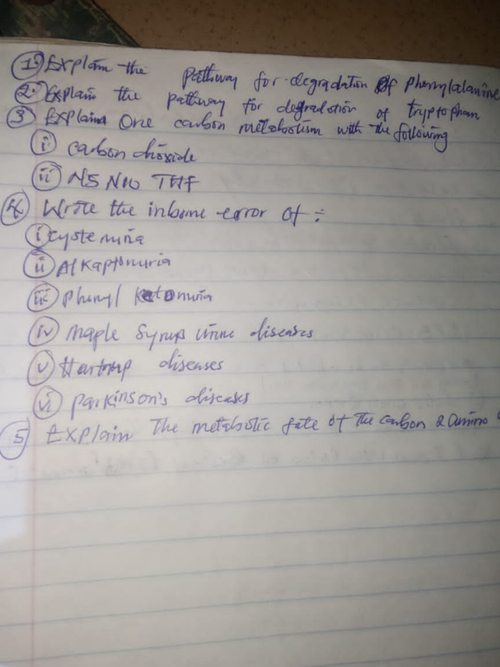 1. Explain the pathway for degradation of phenylalanine
2. Explain the pathway for degradation of tryptophan
3 Explain One carbon metabolism with the following
i carbon dioxide
ii N5 N10 THF
4 Write the inborne error of :-
i cystemuria
ii Alkaptonuria
iii phenyl ketonuria
iv maple syrup urine diseases
v Hartnup diseases
vi parkinson's diseases
5 Explain The metabolic fate of the carbon & amino